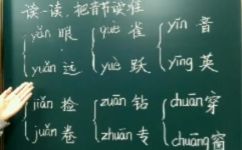 读一读,把音节读准
yǎn 眼 què 雀 yīn 音
yuǎn 远 yuè 跃 yīng 英
jiǎn 捡 zuān 钻 chuān 穿
juǎn 卷 zhuān 专 chuāng 窗